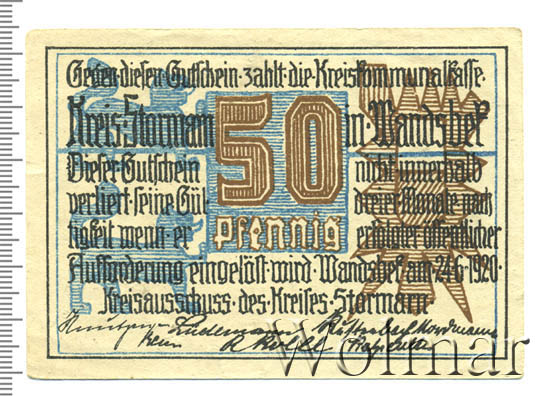 Gegen·diesen·Gutschein·zahlt·die·Kreiskommunalkasse·
Kreis·Stormarn 50 in·Wandsbek
Dieser·Gutschein nicht·innerhalb
verliert·seine·Gül- dreier·Monate·nach
tigkeit·wenn·er pfennig erfolgter·öffentlicher
Aufforderung·eingelöst·wird·Wandsbek·am·24·6·1920·
Kreisausschuss·des·Kreises·Stormarn·
Lüdemann
Wolmar